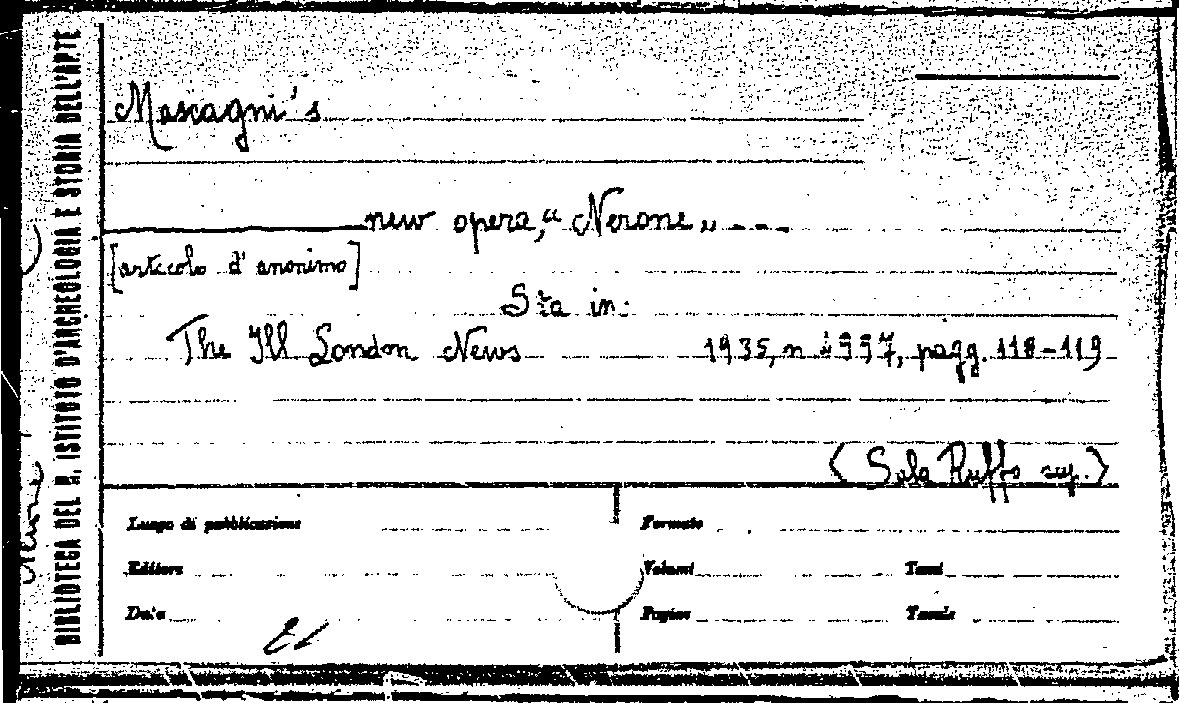 BIBLIOTECA DEL R. ISTITUTO D'ARCHEOLOGIA E STORIA DELL'ARTE
Mascagni's
new opera, "Nerone„ ---
[articolo d'anonimo]
Sta in:
The Ill London News 1935, n 4997, pagg. 118-119
(Sala Ruffo sup.)
Luogo di pubblicazione Formato
Editore Volumi Tomi
Data Pagine Tavole